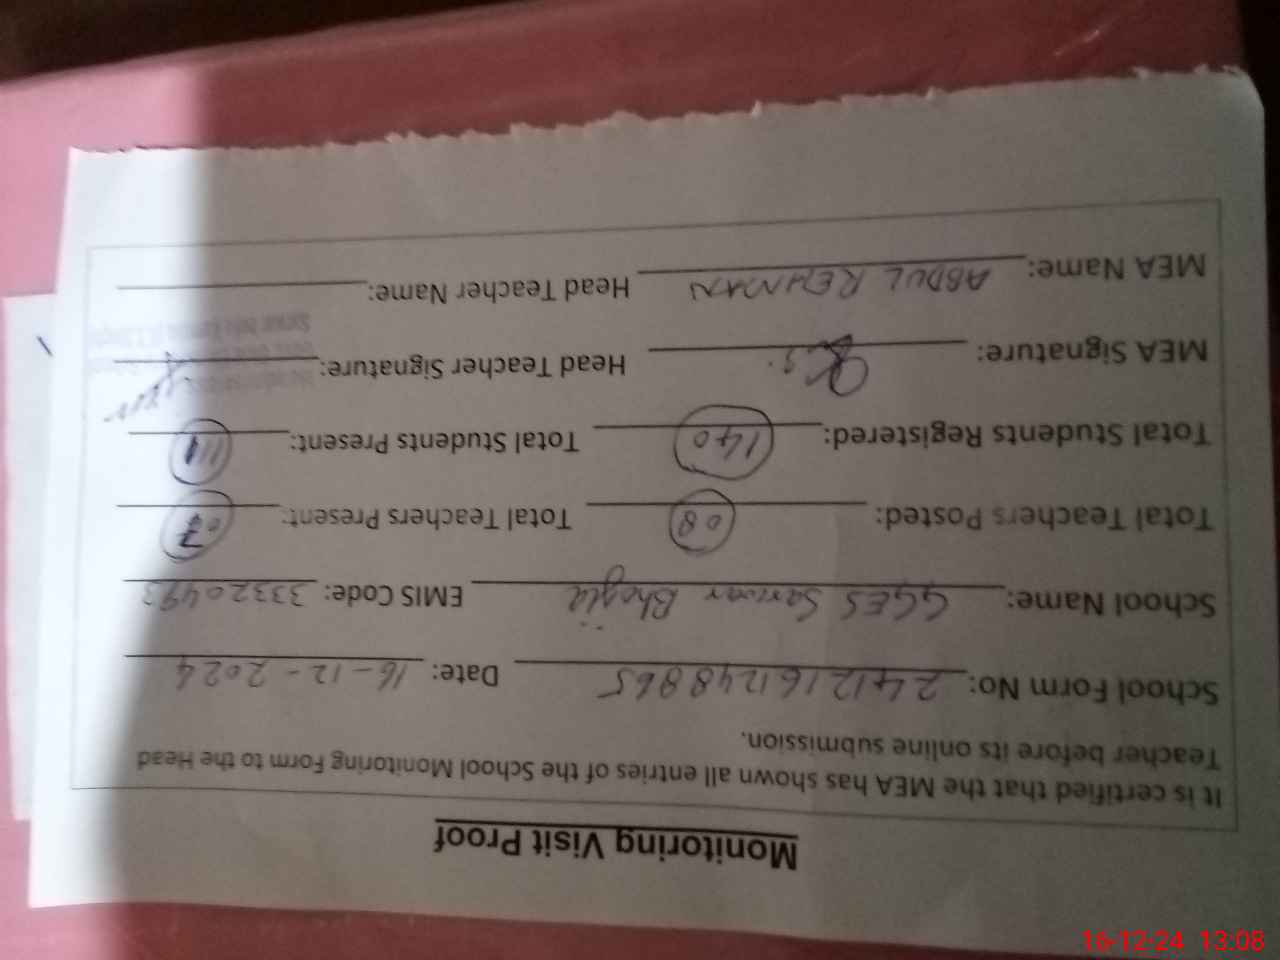 Monitoring Visit Proof
It is certified that the MEA has shown all entries of the School Monitoring Form to the Head
Teacher before its online submission.
School Form No: 2412161248865 Date: 16-12-2024
School Name: GGES Sarwar Bhojia EMIS Code: 33320493
Total Teachers Posted: 08 Total Teachers Present: 07
Total Students Registered: 140 Total Students Present: 111
MEA Signature: Head Teacher Signature:
MEA Name: ABDUL REHMAN Head Teacher Name:
16-12-24 13:08